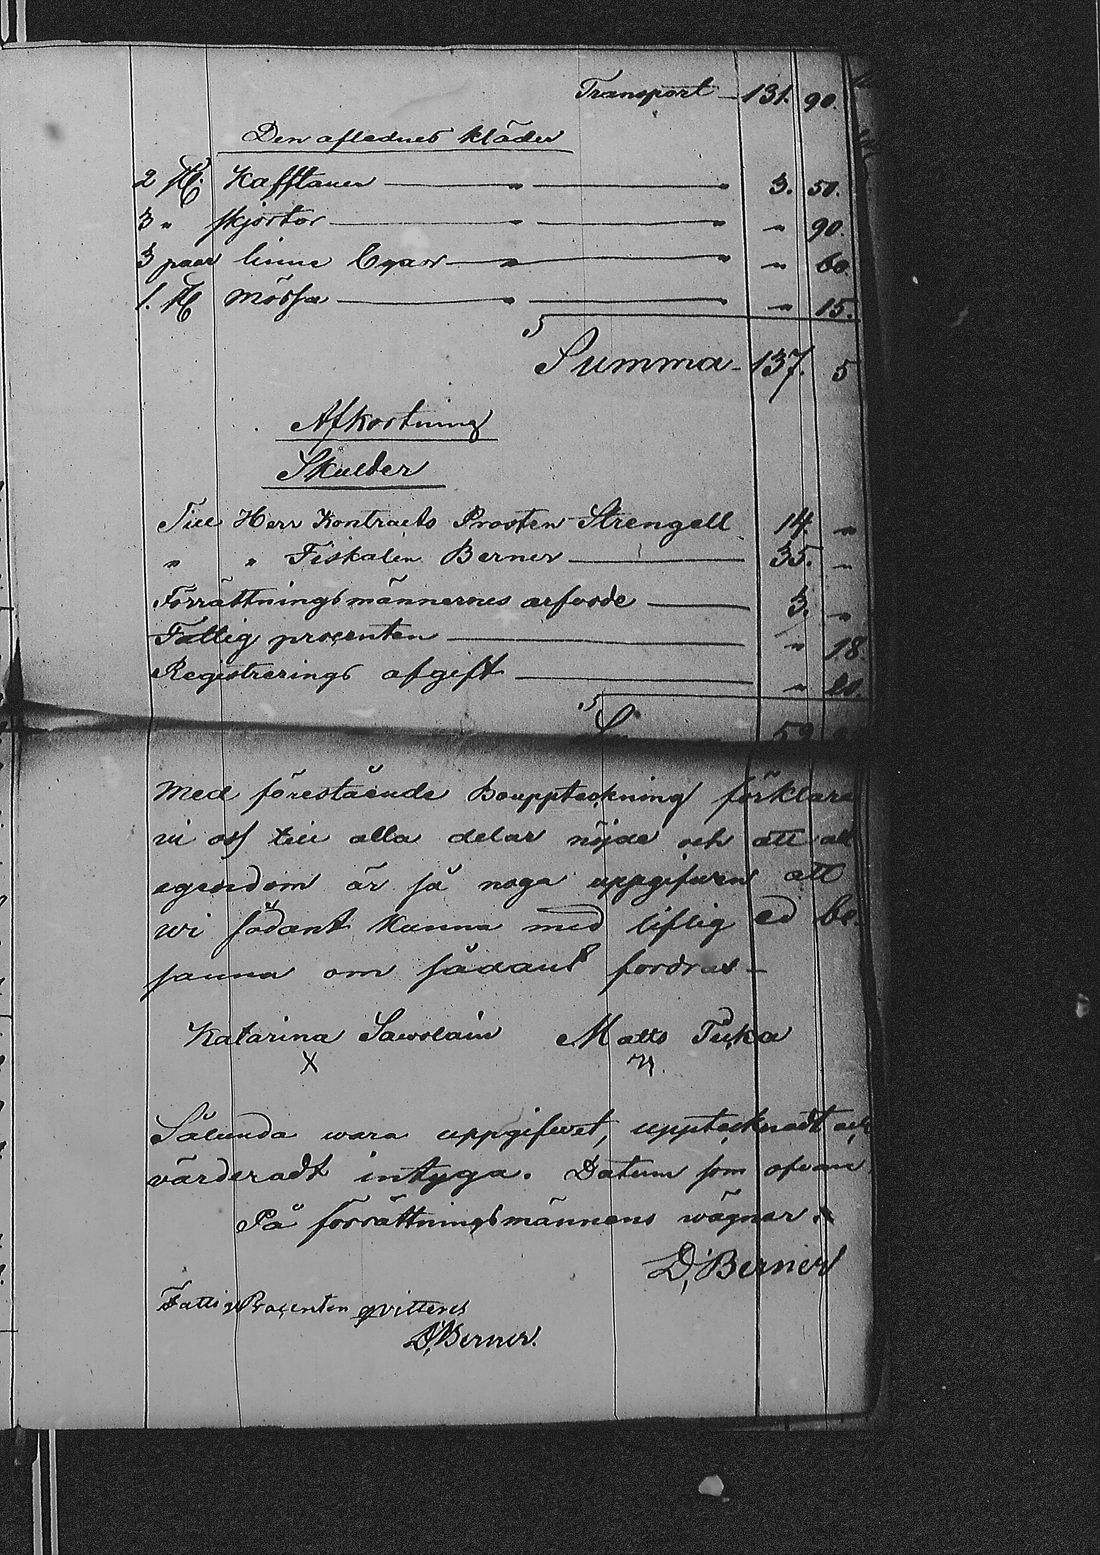 Transport 131. 90.
Den aflednes kläder
2 st. Kafftaner " " 3. 50.
3 " skjortor " " " 90.
3 paar linne Byxor " " " 60.
1. st Mössa " " " 15.
Summa 137. 5
Afkortning
Skulder
Till Herr Kontrakts Prosten Strengell 14. "
" " Fiskalen Berner 35. "
Förrättningsmännernes arfvode 3. "
Fattig procenten " 18.
Registrerings afgift " 20.
52.
Med förestående Bouppteckning förklara
vi oss till alla delar nöjde och att all
egendom är så noga uppgifven att
wi sådant kunna med liflig ed be-
sanna om sådant fordras
Katarina Sawolain Matts Tuka
X
Sålunda wara uppgifwet, upptecknadt och
värderadt intyga. Datum som ofvan.
På förrättningsmännens wägnar
D. Berner
Fattig Procenten qvitteras
D. Berner.